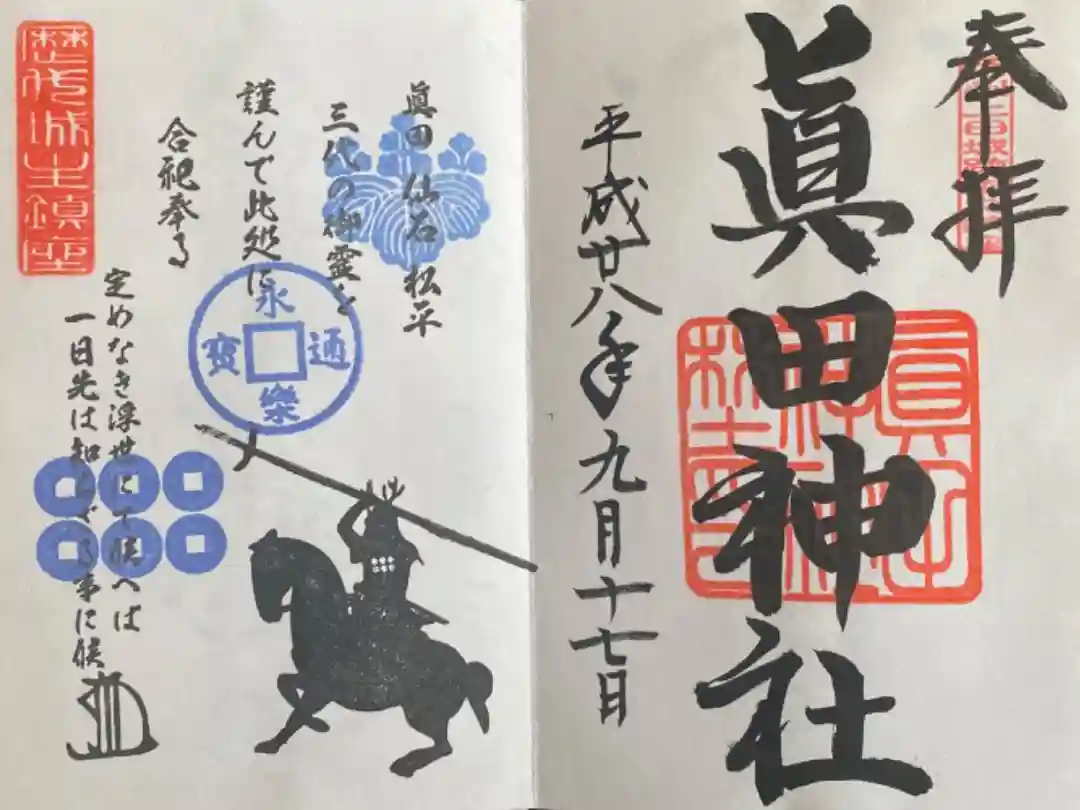 奉拝
眞田神社
平成廿八年九月十七日
眞田 仙石 松平
三代の御霊を
謹んで此処に
合祀奉る
永樂通寳
歴代城主鎮座
定めなき浮世にて候へば
一日先は知れざる事に候